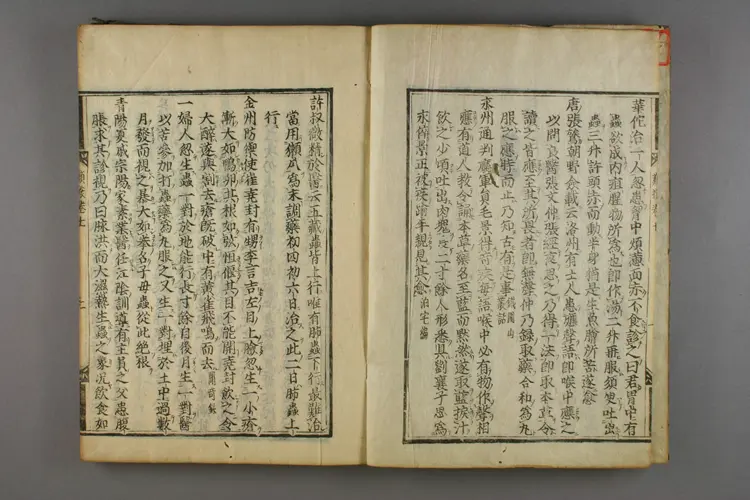 華佗治一人忽患胃中煩懣面赤不食診之曰君胃中有
蟲欲成內疽腥物所為也即作湯二升再服須臾吐出
蟲三升許頭赤而動半身猶是生魚膾所苦遂愈
唐張鷟朝野僉載云洛州有士人患應聲語即喉中應之
以問良醫張文仲張經夜思之乃得一法即取本草令
讀之皆應至其所畏者即無聲仲乃錄取藥合和為丸
服之應時而止乃知古有是事
永州通判廳軍員毛景得奇疾每語喉中必有物作聲相
應有道人教令誦本草藥名至藍而默然遂取藍捩汁
飲之少頃吐出肉塊長二寸餘人形悉具劉襄子思為
永倅景正被疾踰年親見其愈
許叔微精於醫云五藏蟲皆上行唯有肺蟲下行最難治
當用獺爪為末調藥初四初六日治之此二日肺蟲上
行
金州防禦使崔堯封有甥李言吉左目上瞼忽生一小瘡
漸大如鴨卵其根如弦恒偃其目不能開堯封飲之令
大醉遂與割去瘡既破中有黃雀飛鳴而去
一婦人忽生蟲一對於地能行長寸餘自後月生一對醫
以苦參加打蟲藥為丸服之又生一對埋於土中過數
月發而視之暴大如拳名子母蟲從此絕根
青陽夏戚宗陽家素業醫任江陰訓導有生員之父患腹
脹求其診視乃曰脈洪而大濕熱生蟲之象況飲食如